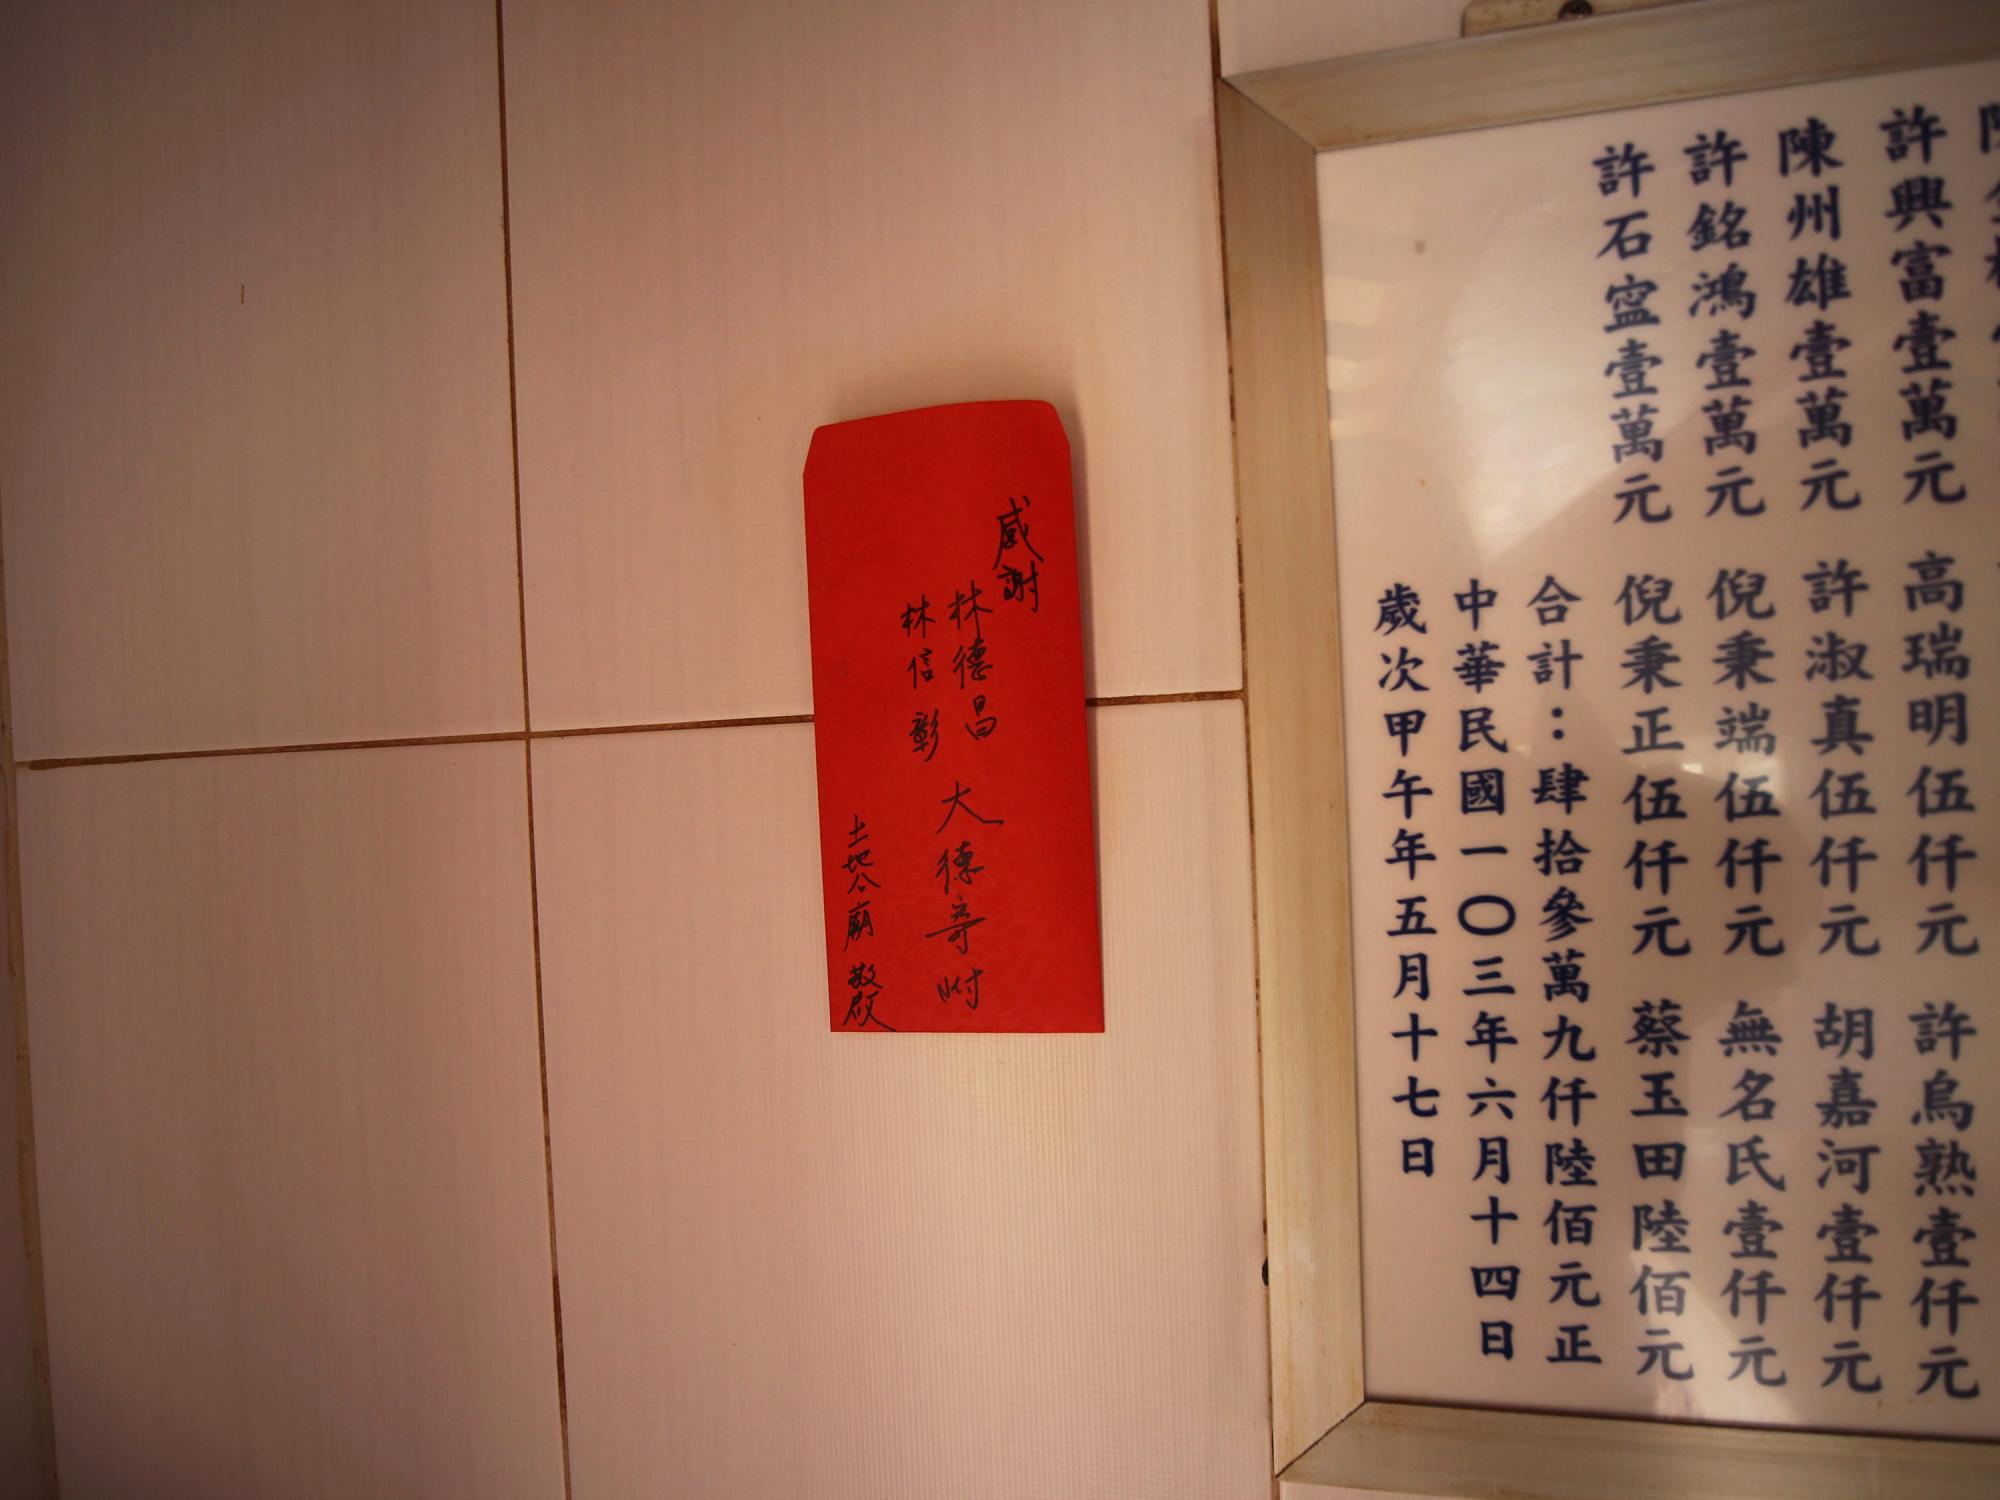 許興富壹萬元 高瑞明伍仟元 許烏熟壹仟元
陳州雄壹萬元 許淑真伍仟元 胡嘉河壹仟元
許銘鴻壹萬元 倪秉端伍仟元 無名氏壹仟元
許石寍壹萬元 倪秉正伍仟元 蔡玉田陸佰元
合計：肆拾參萬九仟陸佰元正
中華民國一〇三年六月十四日
歲次甲午年五月十七日
感謝
林德昌
林信彰
大德寄附
土地公廟 敬啟